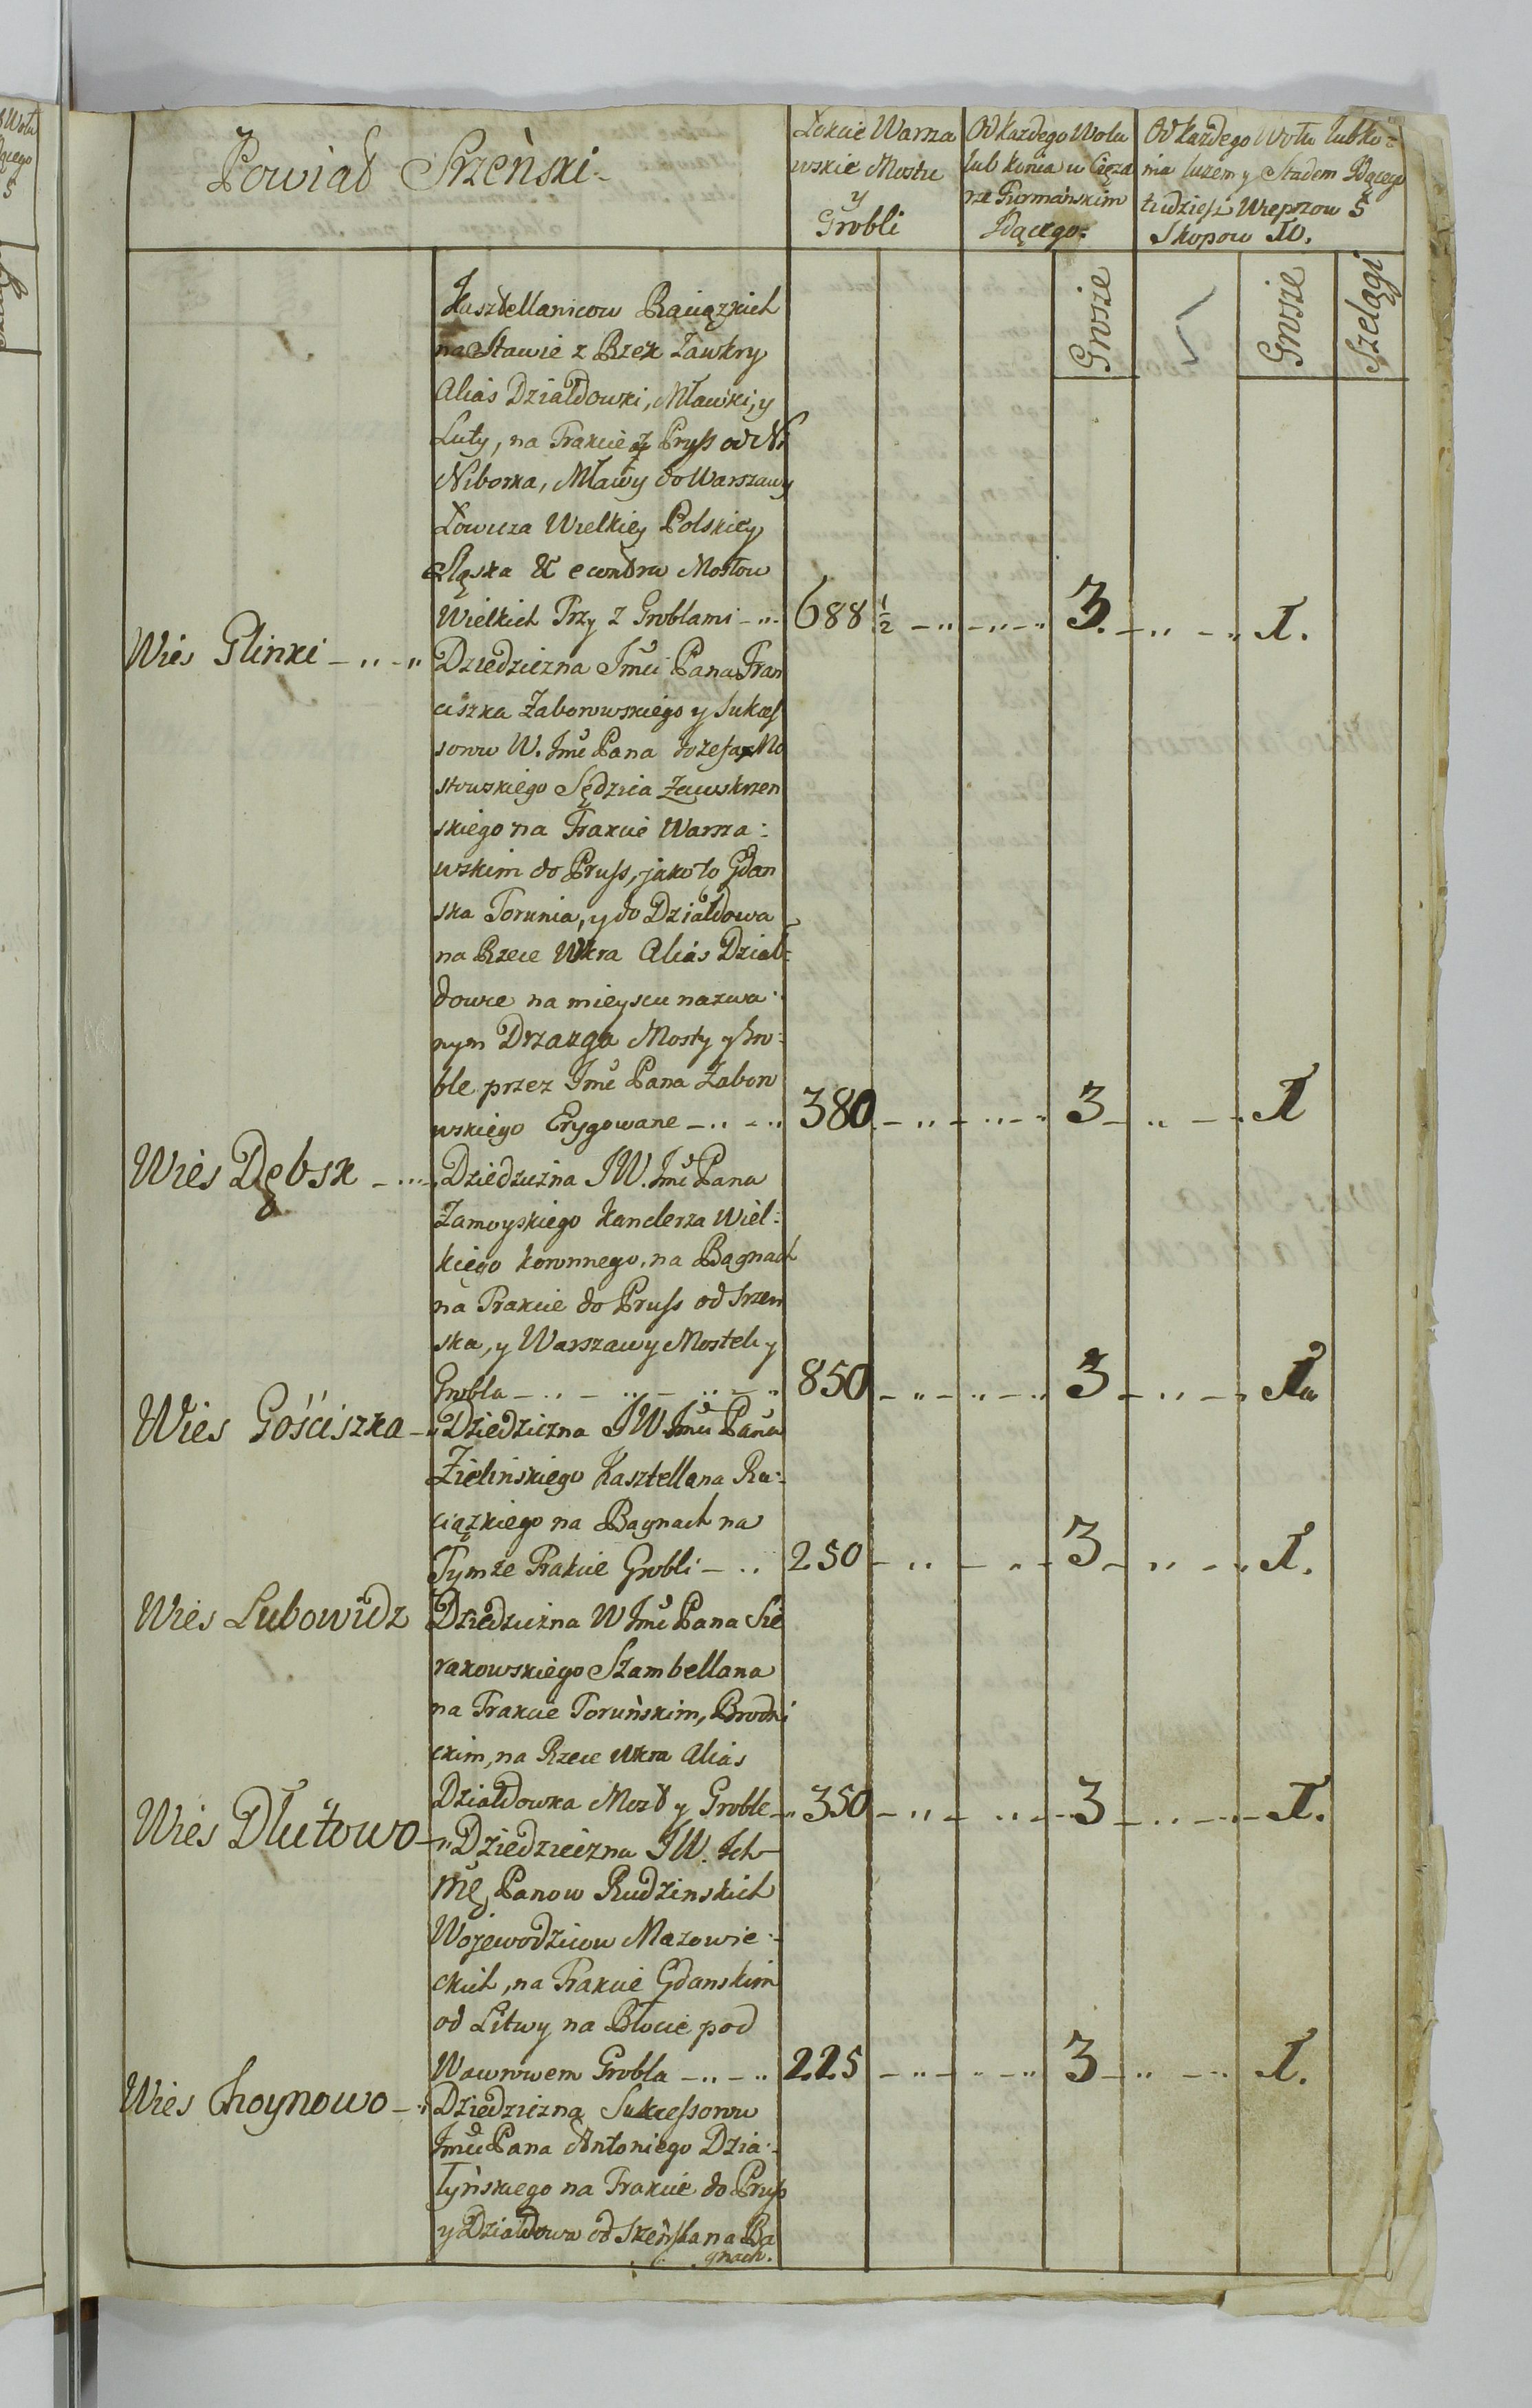 Powiat Srzeński
Łokcie Warsza
wskie Mostu
y
Grobli
Od każdego Wołu
lub Konia w Cięża
rze Furmańskim
Idącego:
Od każdego Wołu lub Ko:
nia luzem y Stadem Idącego
tudziesz Wieprzow 5
Skopow 10.
Grosze
Grosze
Szelągi
Kasztellanicow Raciązkich
na Stawie z Rzek Zawkry
Alias Działdowki, Mławki, y
Luty, na Trakcie z Pruss od Ni
Niborka, Mławy do Warszawy
Łowicza Wielkiey Polskiey
Sląska & e contra Mostow
Wielkich Trzy z Groblami - ,, - 688 1/2 - ,, - ,, - ,, 3. - ,, - ,, 1.
Wies Glinki - ,, - ,, Dziedziczna Jmci Pana Fran
ciszka Zaborowskiego y Sukces
sorow W. Jmci Pana Jozefa Mo
stowskiego Sędzica Zawskrzen
skiego na Trakcie Warsza:
wskim do Pruss, jako to Gdan
ska Torunia, y do Działdowa
na Rzece Wkra Alias Dział:
dowce na mieyscu nazwa:
nym Drzazga Mosty y Gro:
ble przez Jmci Pana Zaboro
wskiego Erygowane - ,, - ,, 380. - ,, - ,, - ,, 3 - ,, - ,, 1
Wies Dębsk - ,, - Dziedziczna JW. Jmci Pana
Zamoyskiego Kanclerza Wiel:
kiego Koronnego, na Bagnach
na Trakcie do Pruss od Srzen
ska, y Warszawy Mostek y
Grobla - ,, - ,, - ,, - ,, 850 - ,, - ,, - ,, 3 - ,, - ,, 1
Wies Gościszka - ,, Dziedziczna JW. Jmci Pana
Zielinskiego Kasztellana Ra:
ciązkiego na Bagnach na
Tymże Trakcie Grobli - ,, 250 - ,, - ,, - 3 - ,, - ,, 1.
Wies Lubowidz Dziedziczna W Jmci Pana Sie
rakowskiego Szambellana
na Trakcie Toruńskim, Brodni
ckim, na Rzece Wkra Alias
Działdowka Most y Groble - ,, 350 - ,, - ,, - 3 - ,, - ,, - 1.
Wies Dłutowo - ,, Dziedziczna JW. Ich
Panow Rudzinskich
Wojewodzicow Mazowie:
ckich, na Trakcie Gdanskim
od Litwy na Błocie pod
Wawrowem Grobla - ,, - ,, 225 - ,, - ,, - ,, 3 - ,, - ,, 1.
Wies Choynowo - ,, Dziedziczna Sukcessorow
Jmci Pana Antoniego Dzia:
łyńskiego na Trakcie do Pruss
y Działdowa od Srzeńska na Ba
gnach.